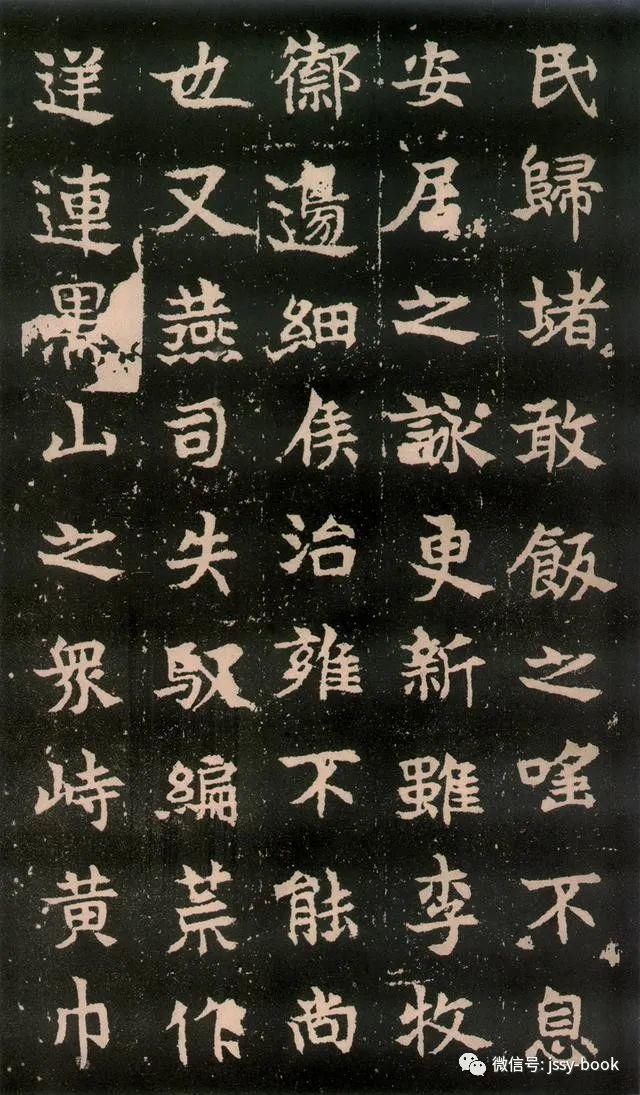 民歸堵敢飯之唯不息
安居之詠更新雖李牧
禦邊細侯治雍不能尚
也又燕司失馭編荒作
逆連黑山之眾峙黃巾
微信号: jssy-book